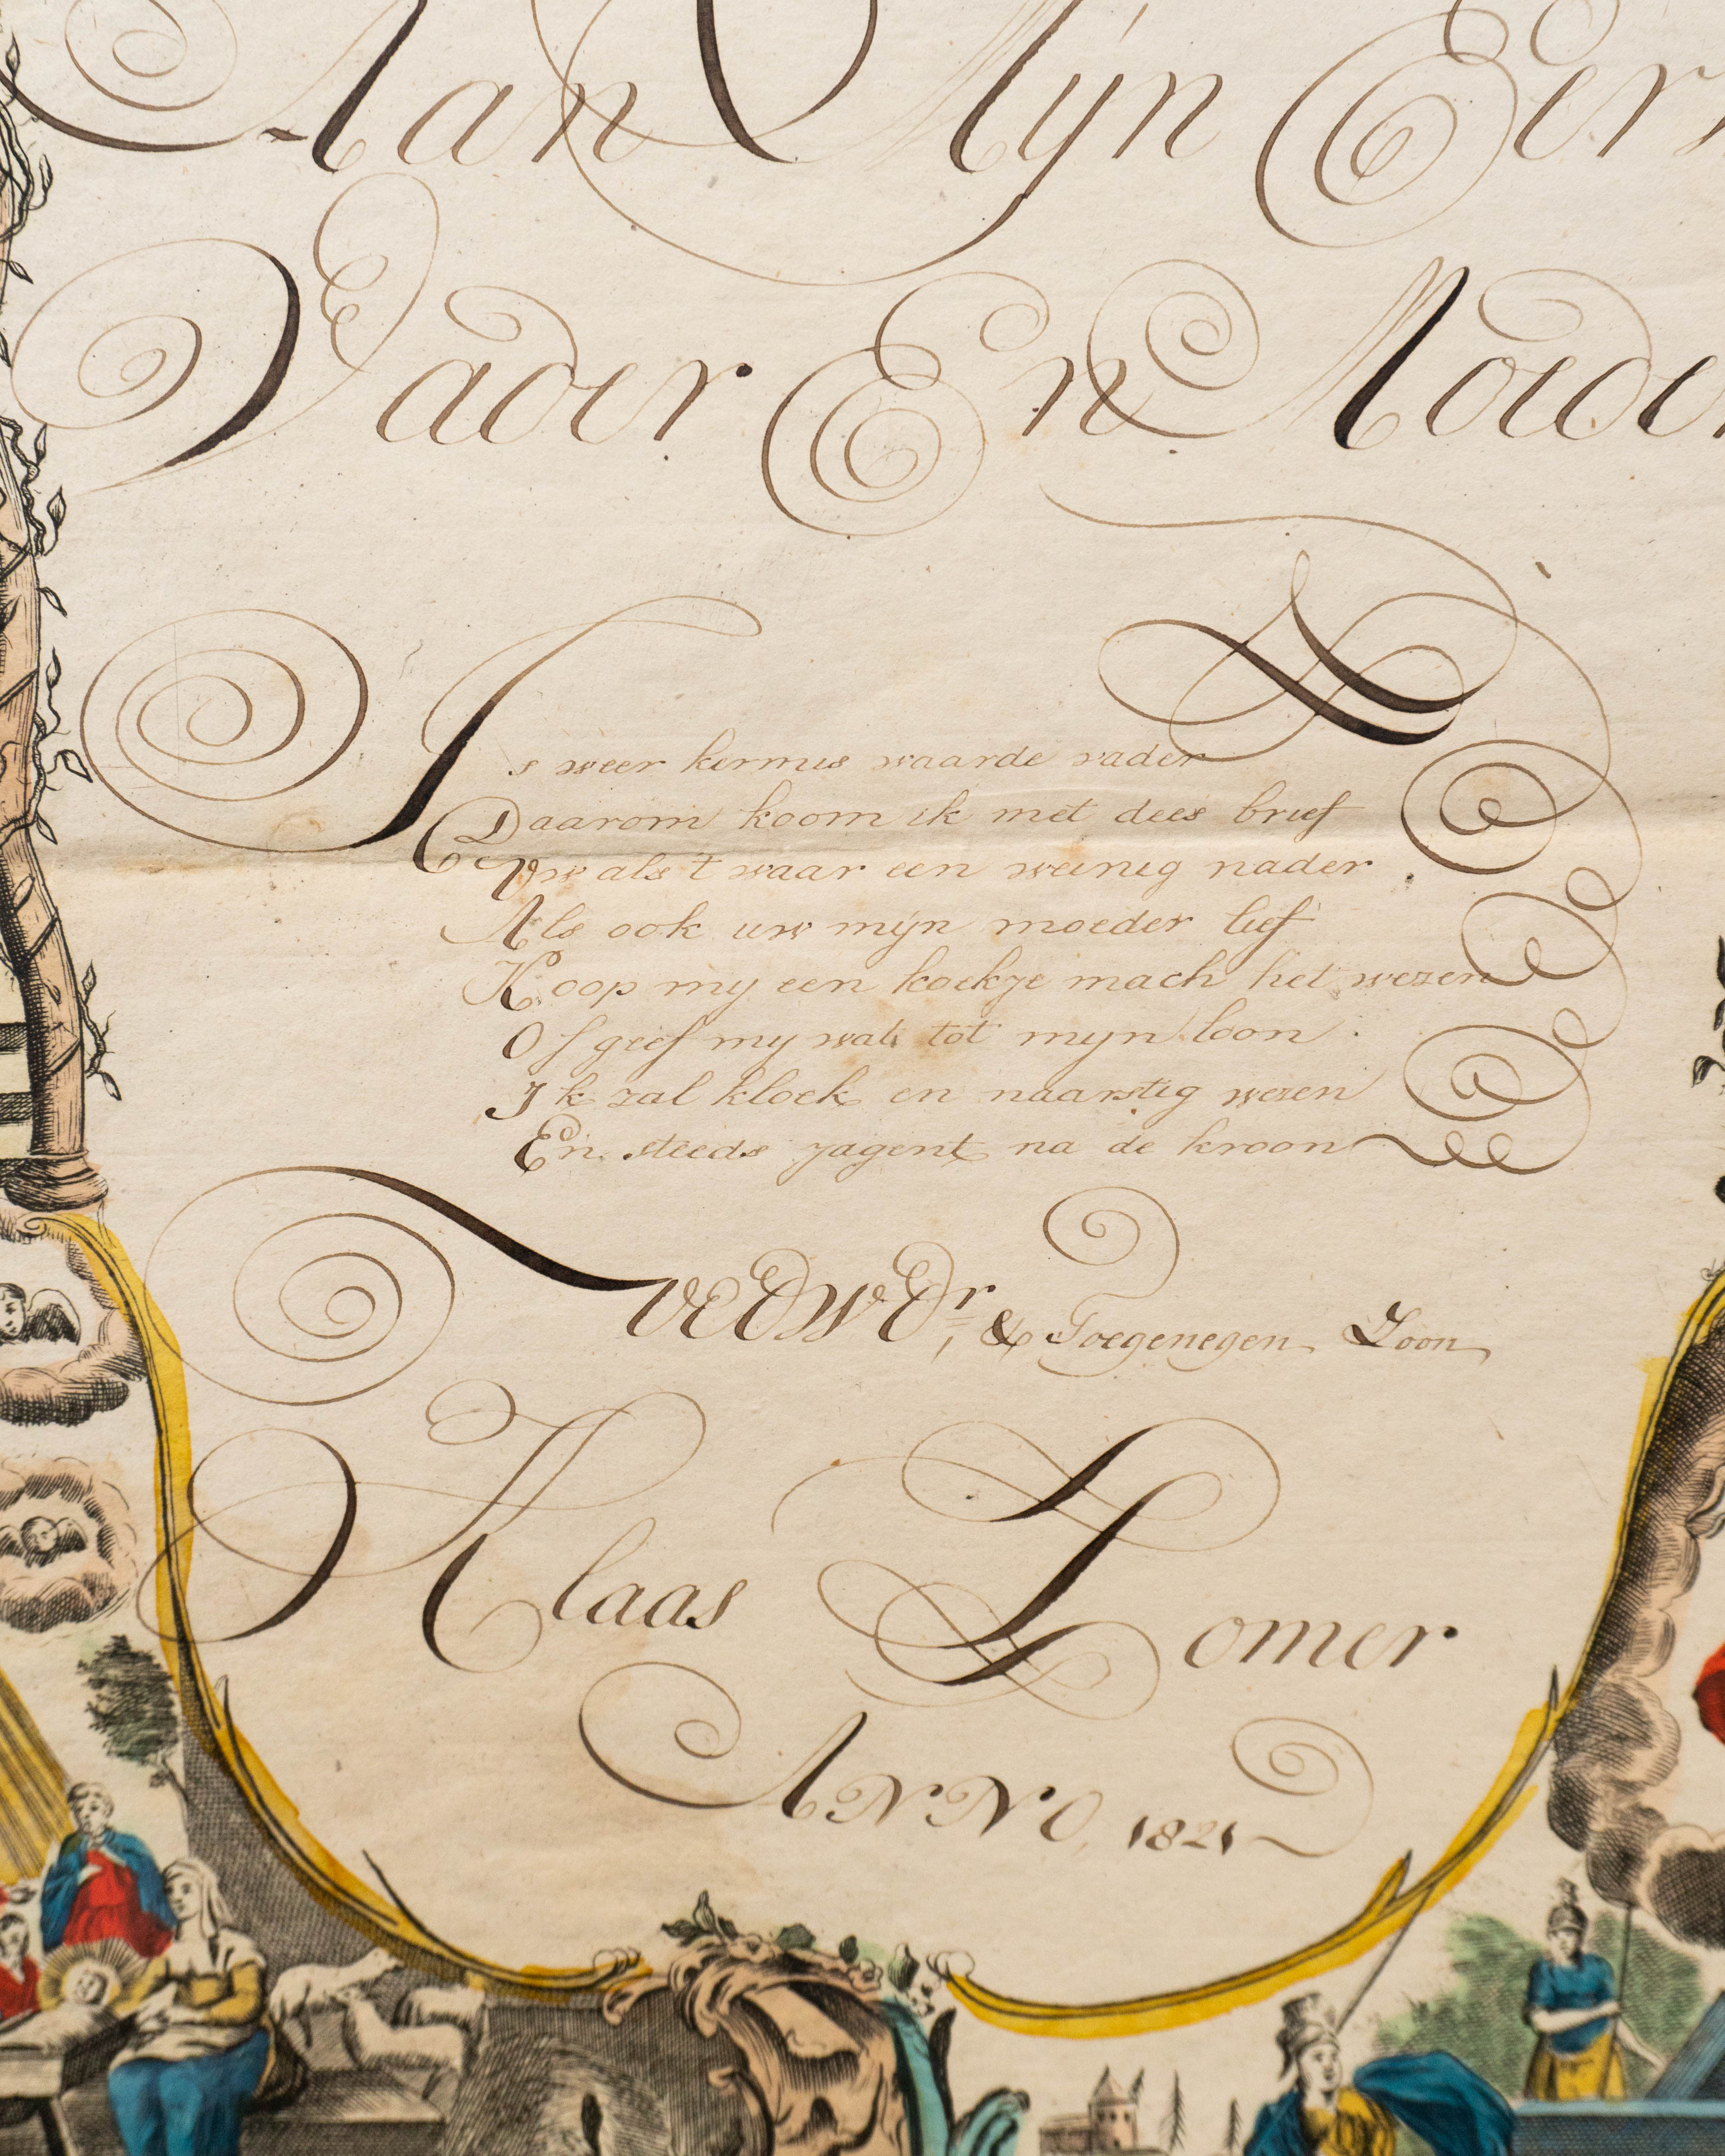 Aan Mijn Eer
Vader En Moeder
Is weer kermis waarde vader
Daarom koom ik met dees brief
Uw als 't waar een weinig nader
Als ook uw mijn moeder lief
Koop my een koekje mach het wezen
Of geef my wat tot myn loon
Ik zal kloek en naarstig wezen
En steeds jagent na de kroon
UEDWDr & Toegenegen Zoon
Klaas Zomer
ANNO, 1821